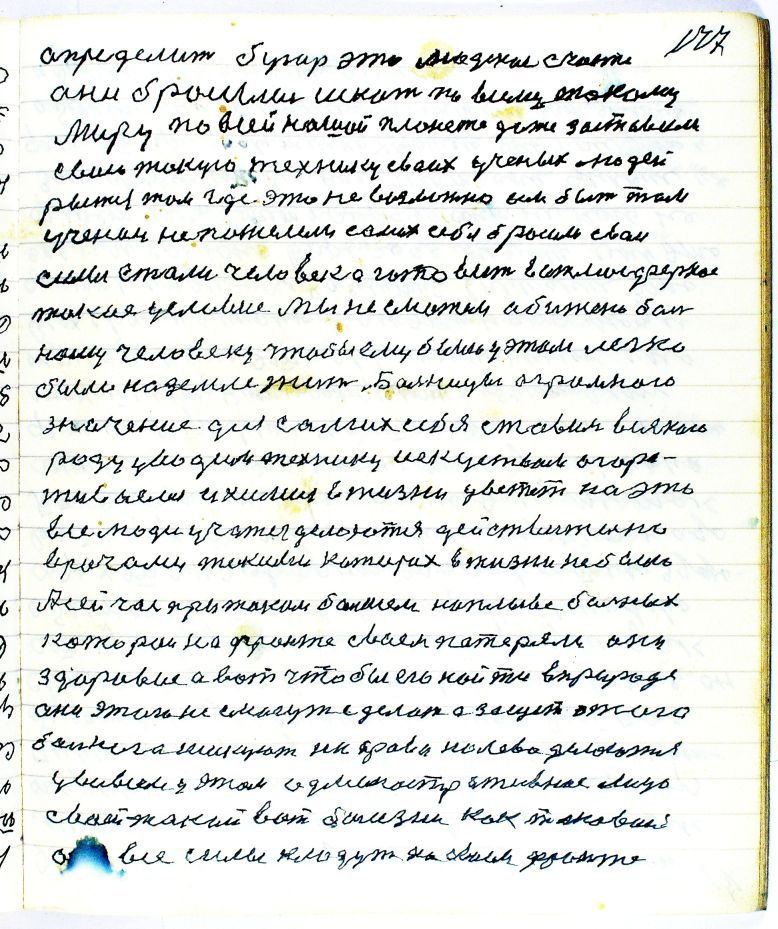 177
определит бугар это людское счастe
они бросили искат по всему такому
миру по всей нашой планете даже заставили
свою такую технику своих ученых людей
рытся там где это не возможно им быт там
ученаи не пожелели самих себя бросили сваи
силы стали человека готовит
такая условие мы не сможем абижено бол
ному человеку чтобы ему было у этом легко
было на земле жит. Болницы огромного
значение для самих себя ставим всякого
роду уводим технику искуством огора
живаемся и химия в жизни цветет на это
все люди учатся делаются действително
врачами такими каторих в жизни небыло
А сей час при таком болшем наплыве болных
каторои на фронте своем патеряли они
здоровие а вот чтобы его найти в природе
они этого не смогут сделат а защет этого
болнога никуют ни права налева делаются
у всем у этом административное лицо
свой такий вот болезни как таковаи
все силы кладут на своем фронте